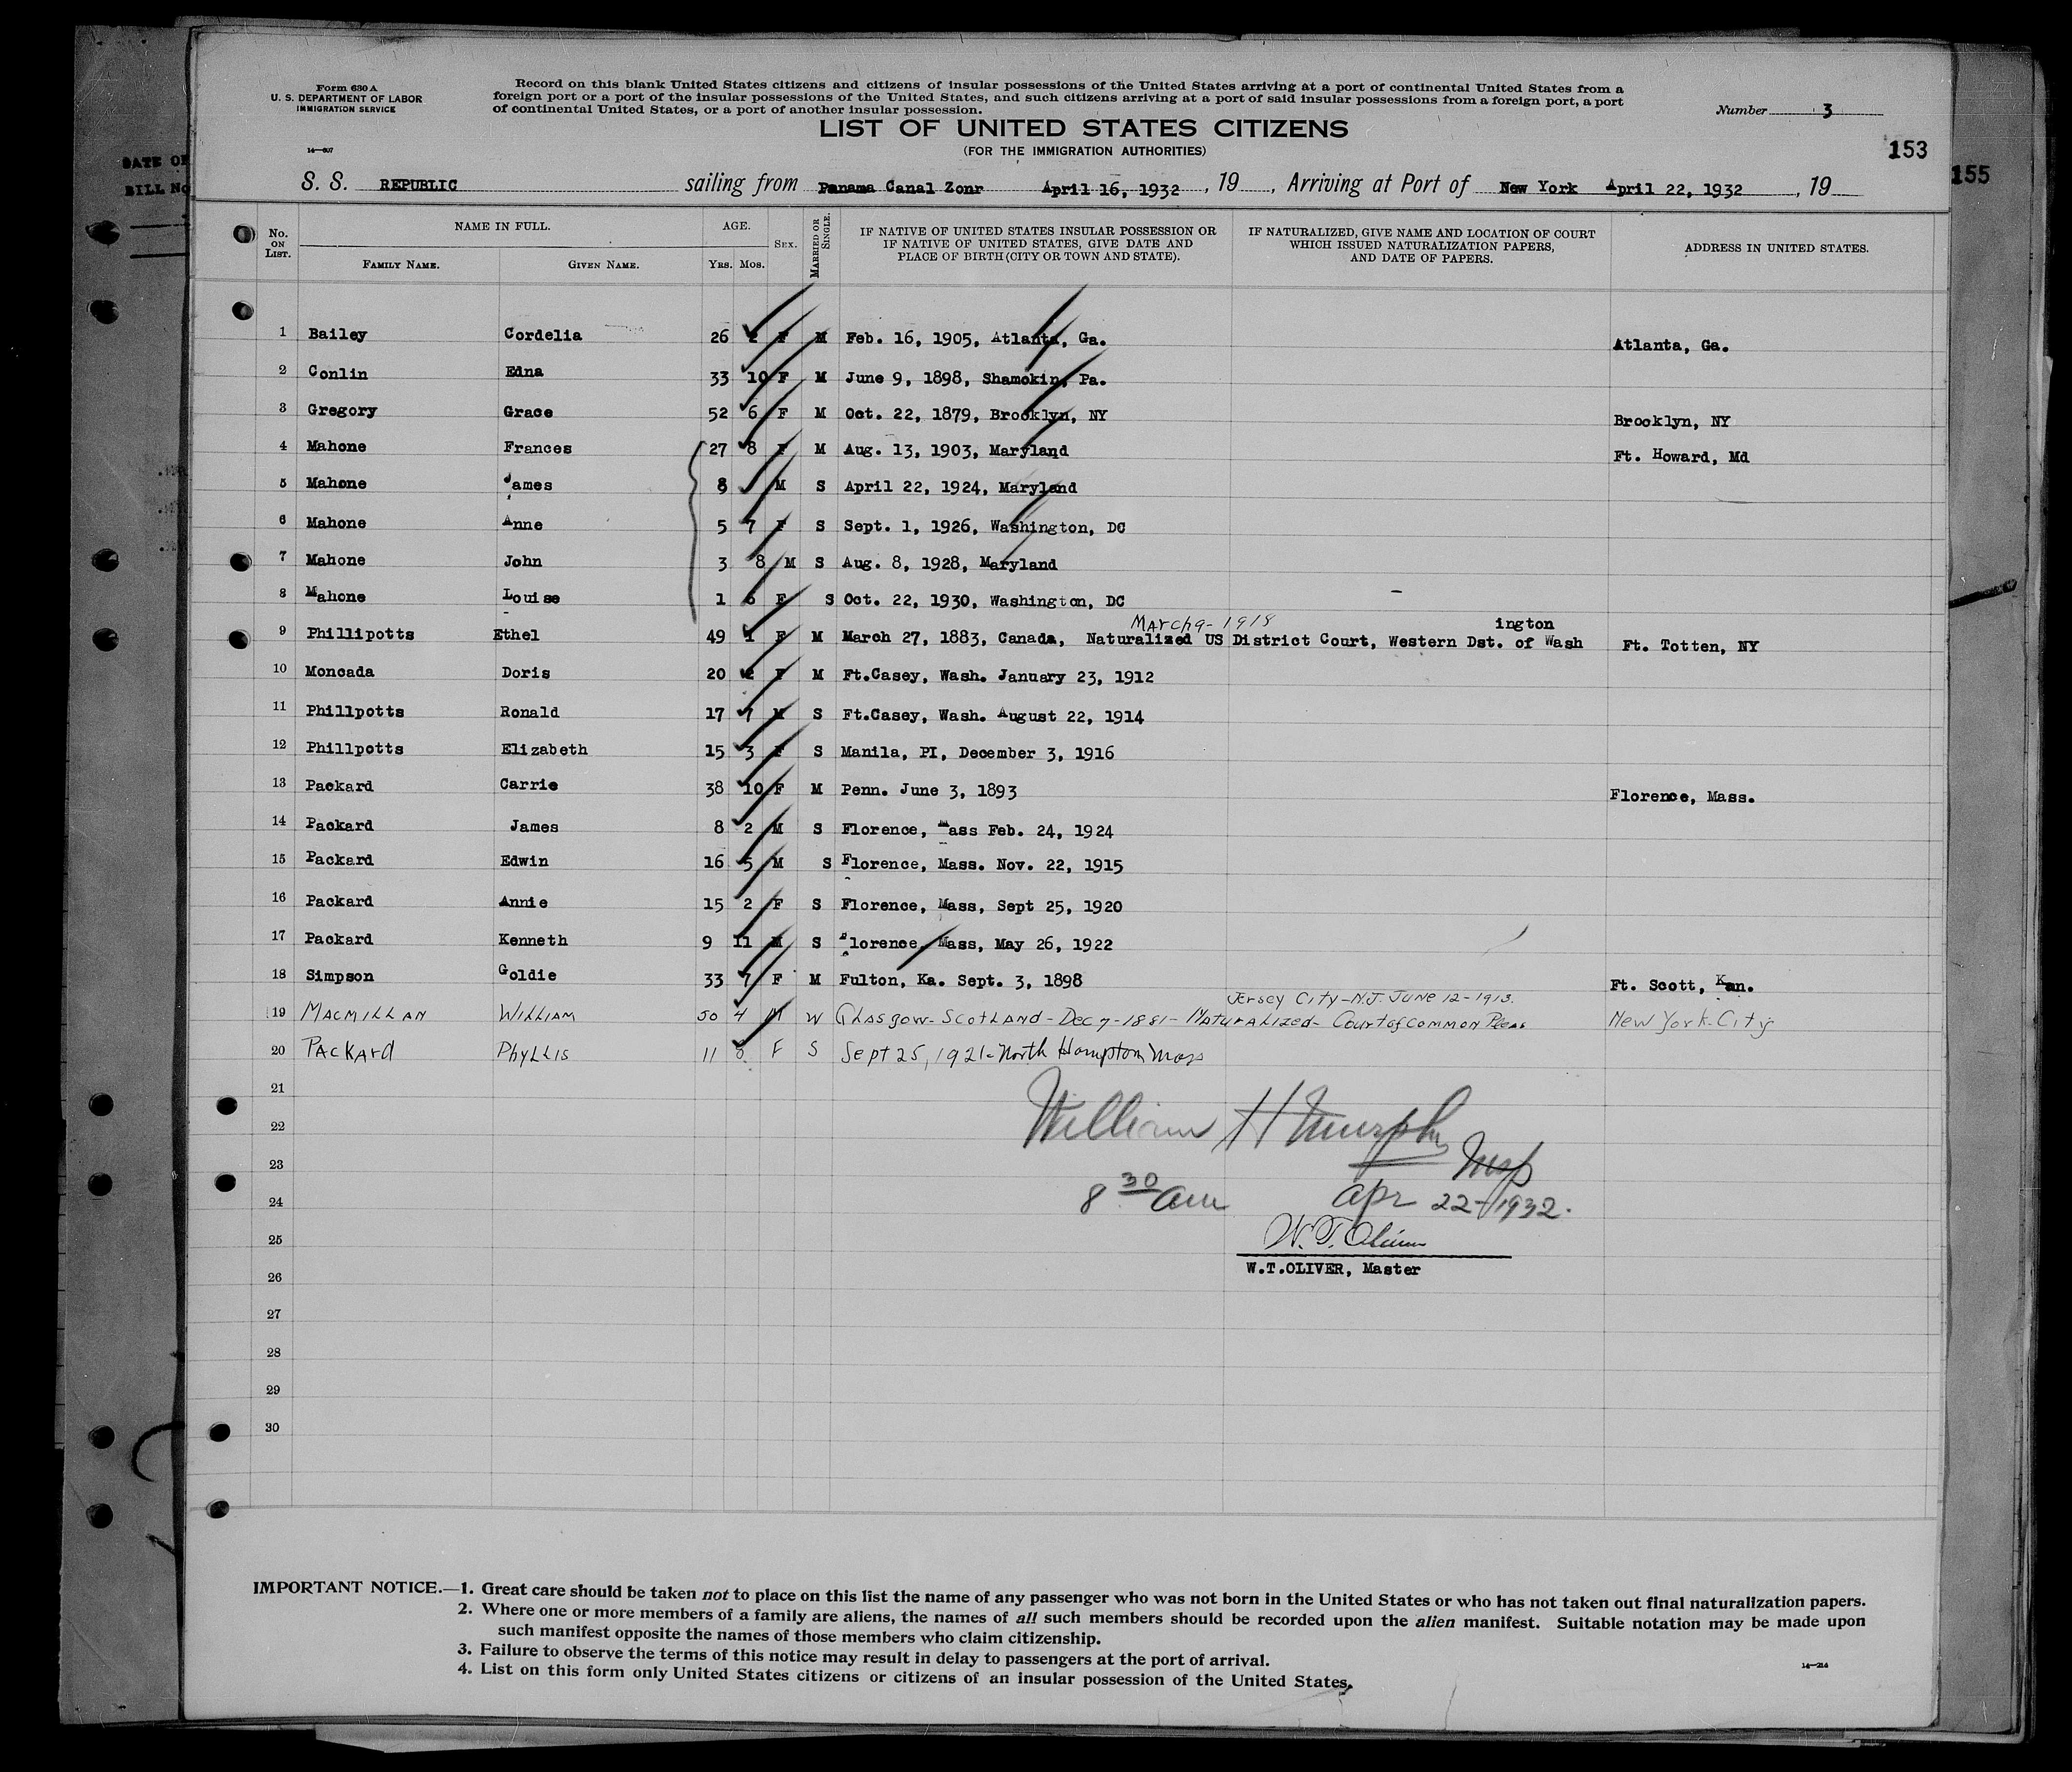 Form 630 A
U. S. DEPARTMENT OF LABOR
IMMIGRATION SERVICE
14—607
Record on this blank United States citizens and citizens of insular possessions of the United States arriving at a port of continental United States from a
foreign port or a port of the insular possessions of the United States, and such citizens arriving at a port of said insular possessions from a foreign port, a port
of continental United States, or a port of another insular possession.
Number 3
LIST OF UNITED STATES CITIZENS
(FOR THE IMMIGRATION AUTHORITIES)
153
155
DATE OF
BILL No
S. S. REPUBLIC sailing from Panama Canal Zonr April 16, 1932, 19, Arriving at Port of New York April 22, 1932, 19
No. ON LIST. NAME IN FULL. FAMILY NAME. GIVEN NAME. AGE. YRS. MOS. SEX. MARRIED OR SINGLE. IF NATIVE OF UNITED STATES INSULAR POSSESSION OR IF NATIVE OF UNITED STATES, GIVE DATE AND PLACE OF BIRTH (CITY OR TOWN AND STATE). IF NATURALIZED, GIVE NAME AND LOCATION OF COURT WHICH ISSUED NATURALIZATION PAPERS, AND DATE OF PAPERS. ADDRESS IN UNITED STATES.
1 Bailey Cordelia 26 2 F M Feb. 16, 1905, Atlanta, Ga. Atlanta, Ga.
2 Conlin Edna 33 10 F M June 9, 1898, Shamokin, Pa.
3 Gregory Grace 52 6 F M Oct. 22, 1879, Brooklyn, NY Brooklyn, NY
4 Mahone Frances 27 8 F M Aug. 13, 1903, Maryland Ft. Howard, Md
5 Mahone James 8 M S April 22, 1924, Maryland
6 Mahone Anne 5 7 F S Sept. 1, 1926, Washington, DC
7 Mahone John 3 8 M S Aug. 8, 1928, Maryland
8 Mahone Louise 1 6 F S Oct. 22, 1930, Washington, DC
March 9-1918 ington
9 Phillipotts Ethel 49 1 F M March 27, 1883, Canada, Naturalized US District Court, Western Dst. of Wash Ft. Totten, NY
10 Moncada Doris 20 2 F M Ft.Casey, Wash. January 23, 1912
11 Phillpotts Ronald 17 7 M S Ft.Casey, Wash. August 22, 1914
12 Phillpotts Elizabeth 15 3 F S Manila, PI, December 3, 1916
13 Packard Carrie 38 10 F M Penn. June 3, 1893 Florence, Mass.
14 Packard James 8 2 M S Florence, Mass Feb. 24, 1924
15 Packard Edwin 16 5 M S Florence, Mass. Nov. 22, 1915
16 Packard Annie 15 2 F S Florence, Mass, Sept 25, 1920
17 Packard Kenneth 9 11 M S Florence, Mass, May 26, 1922
18 Simpson Goldie 33 7 F M Fulton, Ka. Sept. 3, 1898 Ft. Scott, Kan.
Jersey City-N.J. June 12-1913.
19 MacMillan William 50 4 M W Glasgow-Scotland-Dec 7-1881-Naturalized-Court of Common Pleas New York-City
20 Packard Phyllis 11 6 F S Sept 25, 1921-North Hampton Mass
21
22
23
24
25
26
27
28
29
30
William H Murphy
Insp
8 30 am apr 22-1932.
W.T. Oliver
W.T.OLIVER, Master
IMPORTANT NOTICE.—1. Great care should be taken not to place on this list the name of any passenger who was not born in the United States or who has not taken out final naturalization papers.
2. Where one or more members of a family are aliens, the names of all such members should be recorded upon the alien manifest. Suitable notation may be made upon
such manifest opposite the names of those members who claim citizenship.
3. Failure to observe the terms of this notice may result in delay to passengers at the port of arrival.
4. List on this form only United States citizens or citizens of an insular possession of the United States.
14—214